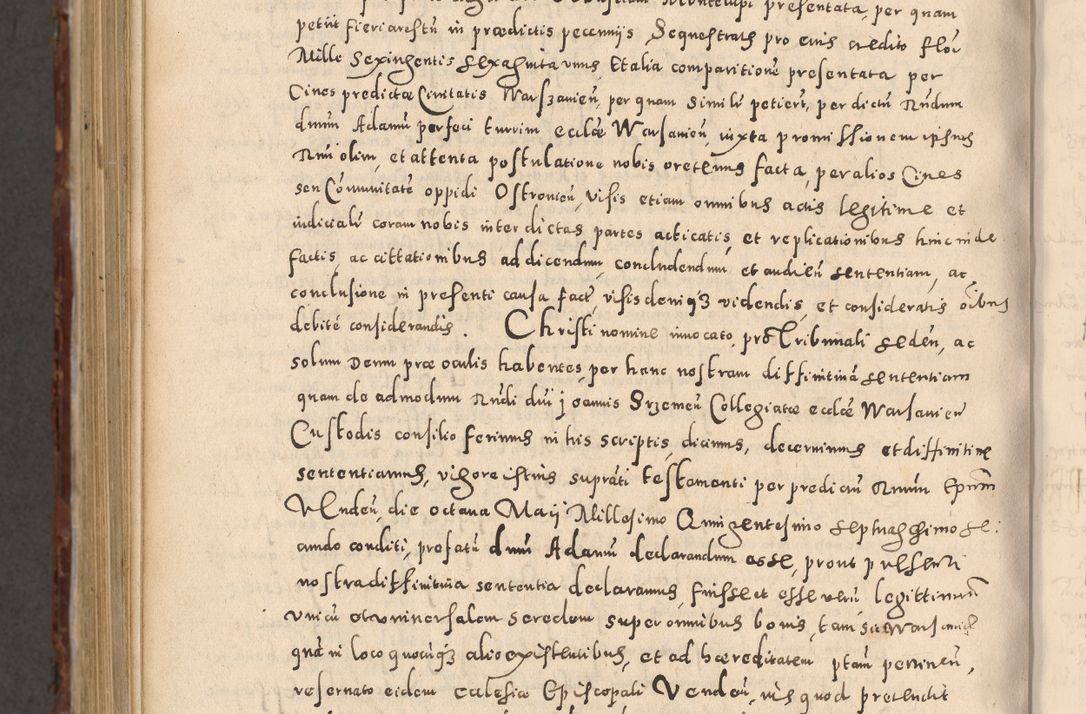 presentata, per quam
petiit fieri arestū in prædictis pecunijs Sequestratis pro eius credito flor
Mille Sexingentis sexaginta unus, Et alia comparitione presentata per
Cives predictæ Civitatis Warszavieñ, per quam simili petierṫ, per dictū Rñdum
dnum Adamū perfici turrim ecclæ Warsavieñ, iuxta promissionem ipsius
Rmi olim, et attenta postulatione nobis oretenus facta, per alios Cives
seu Cōmunitatē oppidi Ostrovieñ, visis etiam omnibus actis legitime et
iudicialr coram nobis inter dictas partes acticatis, et replicationibus hinc inde
factis, ac cittationibus ad dicendum, concludendum et audieñ sententiam, ac
conclusione in presenti causa factā, visis deniq3 videndis, et consideratis oībus
debitē considerandis. Christi nomine invocato, pro Tribunali sedeñ, ac
solum Deum præ oculis habentes, per hanc nostram diffinitivā sententiam
quam de admodum Rñdi dñi Joannis Srzemeñ Collegiatæ ecclæ Warsavieñ
Custodis consilio ferimus in his scriptis, dicimus, decernimus et diffinitive
sententiamus, vigore istius suprāti testamenti per predictū Rmum Epūm
Vendeñ, die octava Maij Millesimo Quingentesimo septuagesimo se:
cundo conditi, prefatū dnum Adamū declarandum esse, prout presenti
nostra diffinitiva sententia declaramus, fuisse et esse verū, legittimum
unicū et universalem heredem super omnibus bonis, tam in Warsavieñ
quā in loco quocūq3 alio existentibus, et ad hæreditatem ptam pertineñ,
reservato eidem ecclesiæ Episcopali Vendeñ, iure quod pretendit